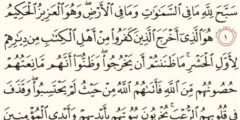 سَبَّحَ لِلَّهِ مَا فِي السَّمَٰوَٰتِ وَمَا فِي الْأَرْضِ ۖ وَهُوَ الْعَزِيزُ الْحَكِيمُ
١ هُوَ الَّذِي أَخْرَجَ الَّذِينَ كَفَرُوا مِنْ أَهْلِ الْكِتَٰبِ مِن دِيَٰرِهِمْ
لِأَوَّلِ الْحَشْرِ ۚ مَا ظَنَنتُمْ أَن يَخْرُجُوا ۖ وَظَنُّوا أَنَّهُم مَّانِعَتُهُمْ
حُصُونُهُم مِّنَ اللَّهِ فَأَتَىٰهُمُ اللَّهُ مِنْ حَيْثُ لَمْ يَحْتَسِبُوا ۖ وَقَذَفَ
فِي قُلُوبِهِمُ الرُّعْبَ ۚ يُخْرِبُونَ بُيُوتَهُم بِأَيْدِيهِمْ وَأَيْدِي الْمُؤْمِنِينَ